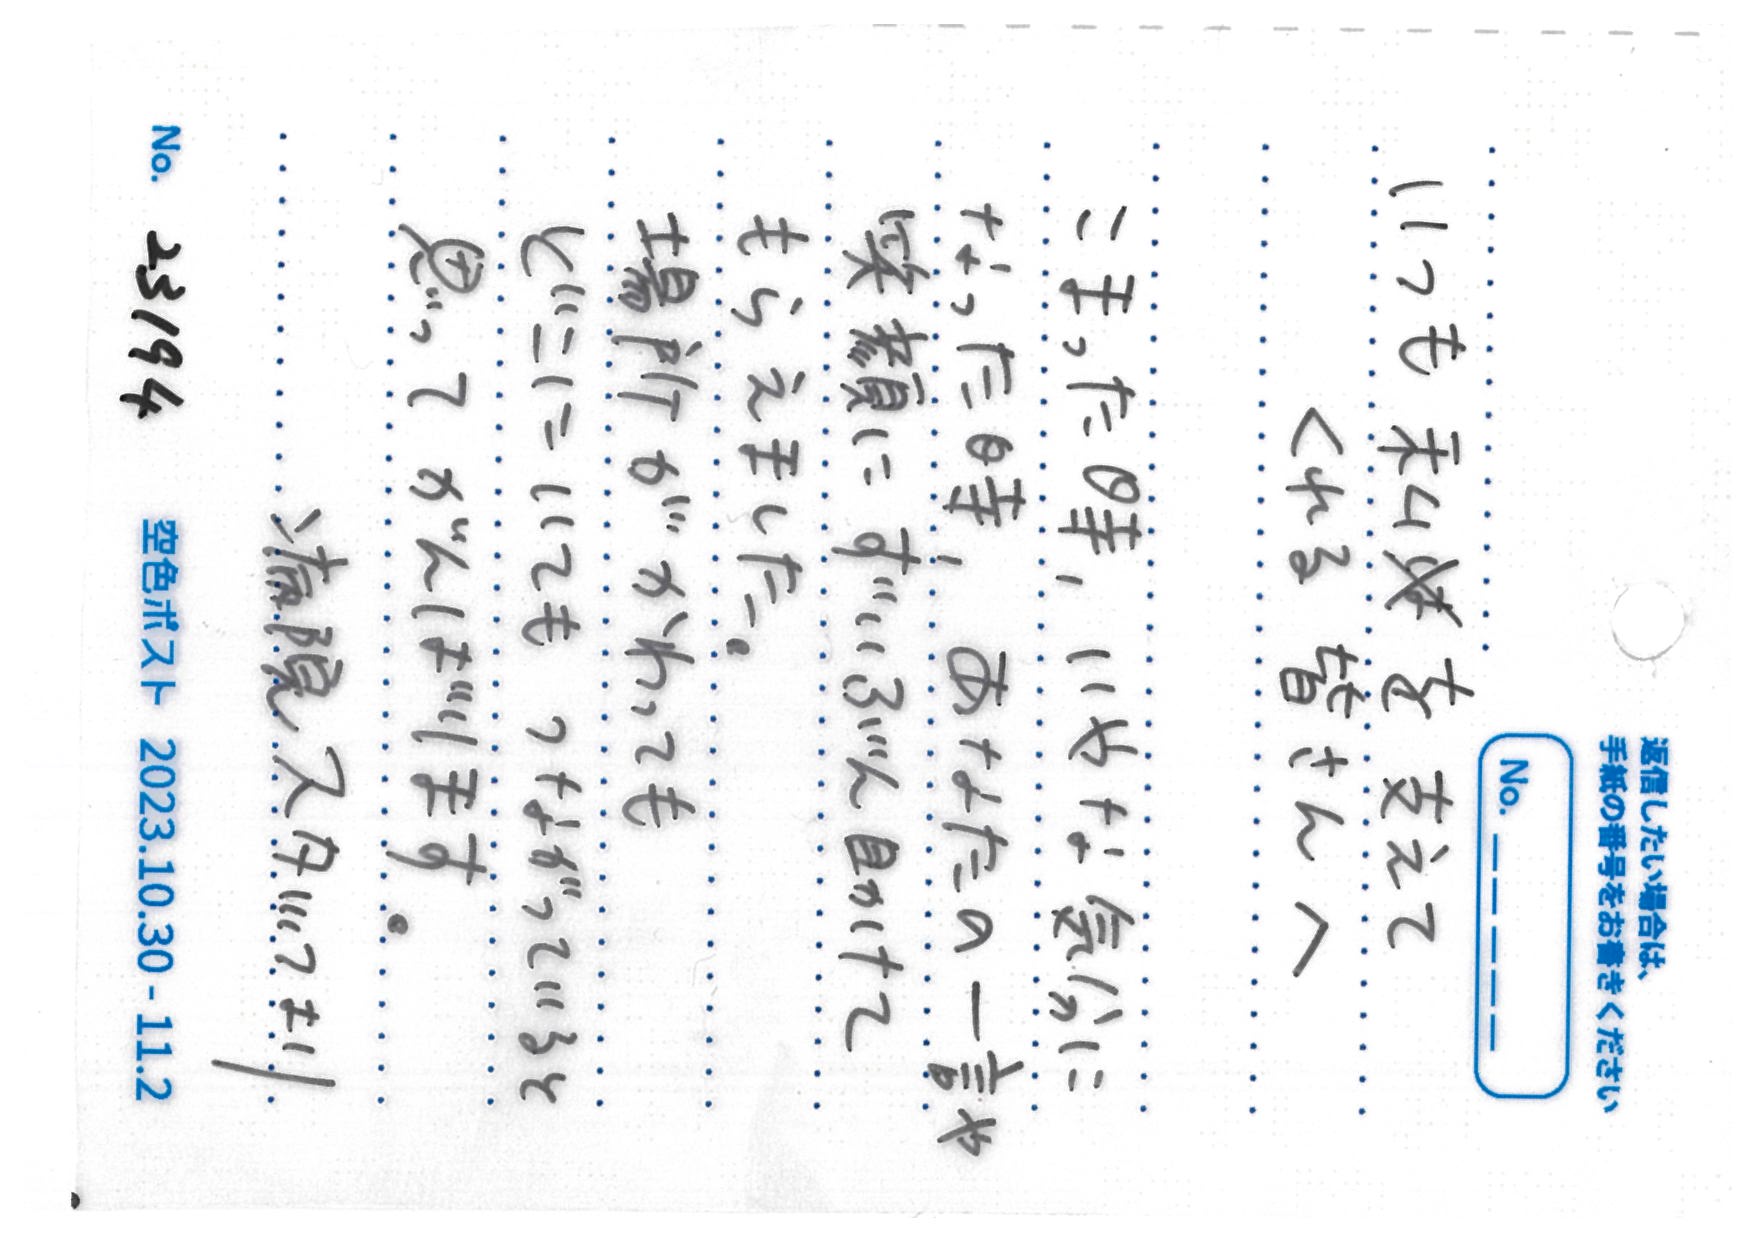 返信したい場合は、
手紙の番号をお書きください
No. _ _ _ _ _
いつも私を支えて
くれる皆さんへ
こまった時, いやな気分に
なった時, あなたの一言や
笑顔にずいぶん助けて
もらえました。
場所がかわっても
どこにいてもつながっていると
思ってがんばります。
病院スタッフより
No. 23194
空色ポスト 2023.10.30 - 11.2